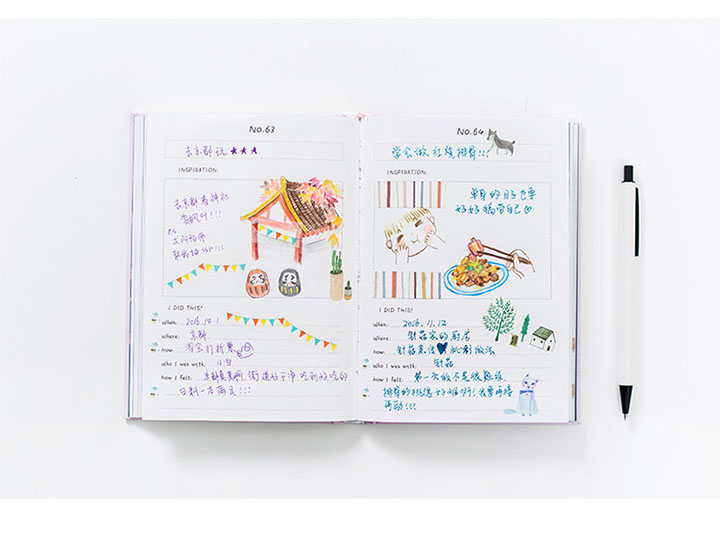 No.63
去京都玩★★★
INSPIRATION:
去京都看神社
赏枫叶!!!
I DID THIS!
When:
Where: 京都
how: 淘宝打折票
Who I was with: 小白
how I felt: 京都真美啊, 街道好干净, 吃到好吃的
日料一本满足!!!
No.64
学会做红烧排骨!!!
INSPIRATION:
单身的日子也要
好好犒劳自己♡
I DID THIS!
When: 2016.11.12
Where: 的厨房
how: 秘制做法
Who I was with:
how I felt: 第一次做不是很熟练,
排骨的挑选好难啊! 我要再接
再励!!!